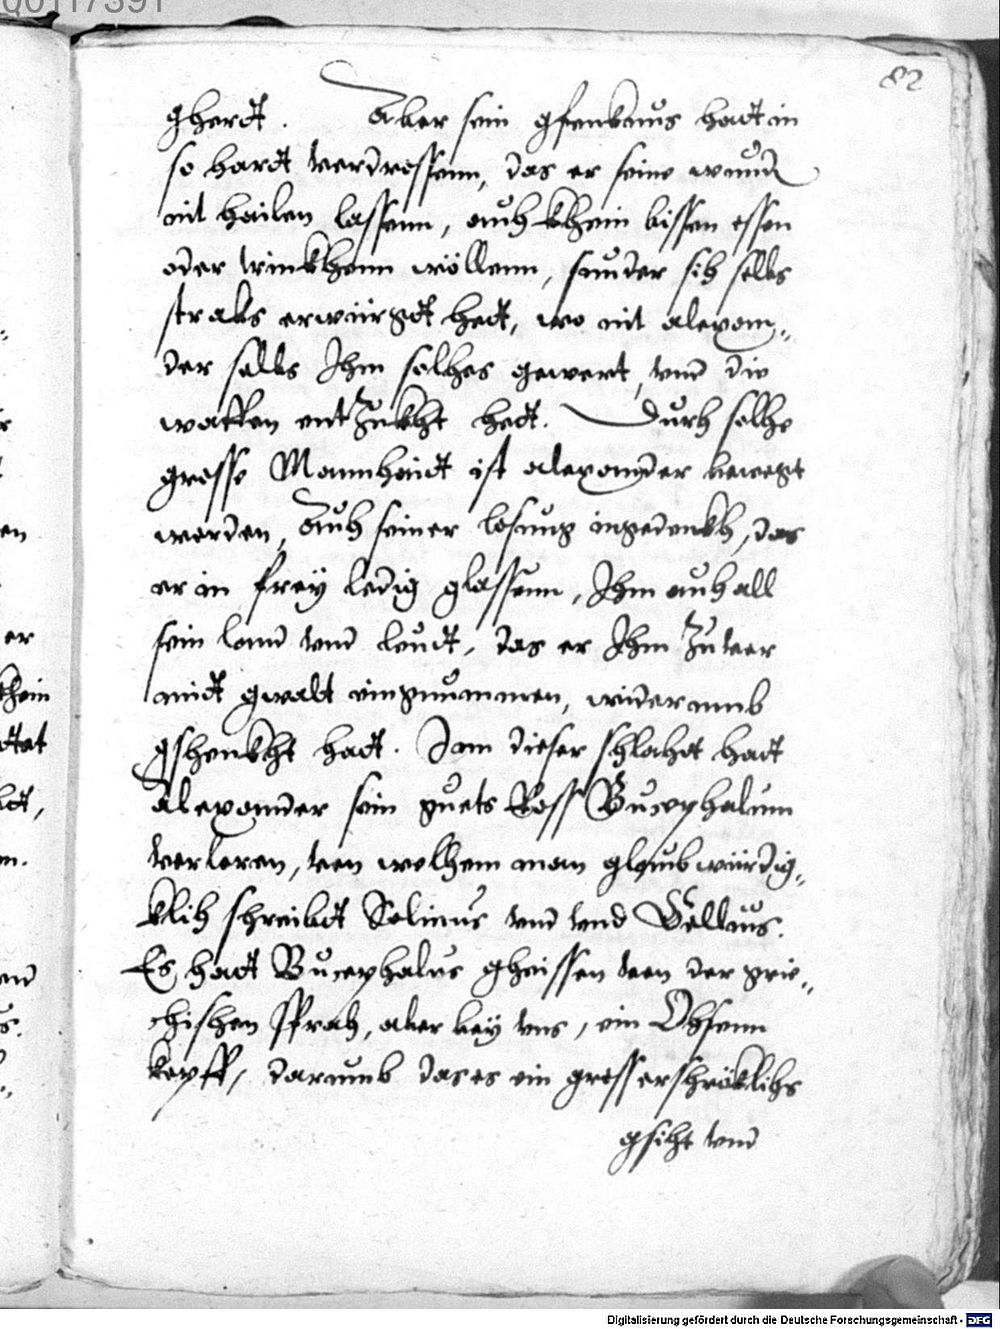 82
gherdt. Aber sein gfenknus hadt in
so hardt verdrossenn, das er seine wundn
nit hailen lassenn, auch khein bissen essen
oder trinkhenn wöllenn, sunder sich selbs
straks erwürgdt hedt, wo nit alexan„
der selbs Ihm solches gewert, vnd die
waffen entzukht hedt. Durch solche
grosse Mannhaidt ist alexander bewegt
worden, Auch seiner losung ingedenkh, das
er in frey ledig glassenn, Ihm auch all
sein land vnd leudt, das er Ihm zuvor
midt gwalt eingnummen, widerumb
gschenkht hadt. Inn dieser schlacht hadt
Alexander sein guets Ross Bucephalum
verloren, von welchem man glaubwürdig„
klich schreibdt Solinus vnd vnd Gellius.
Es hadt Bucephalus gheissen von der grie„
chischen Sprach, aber bey vns, ein Ochsenn
kopff, darumb das es ein gross erschröklichs
gsicht vnd